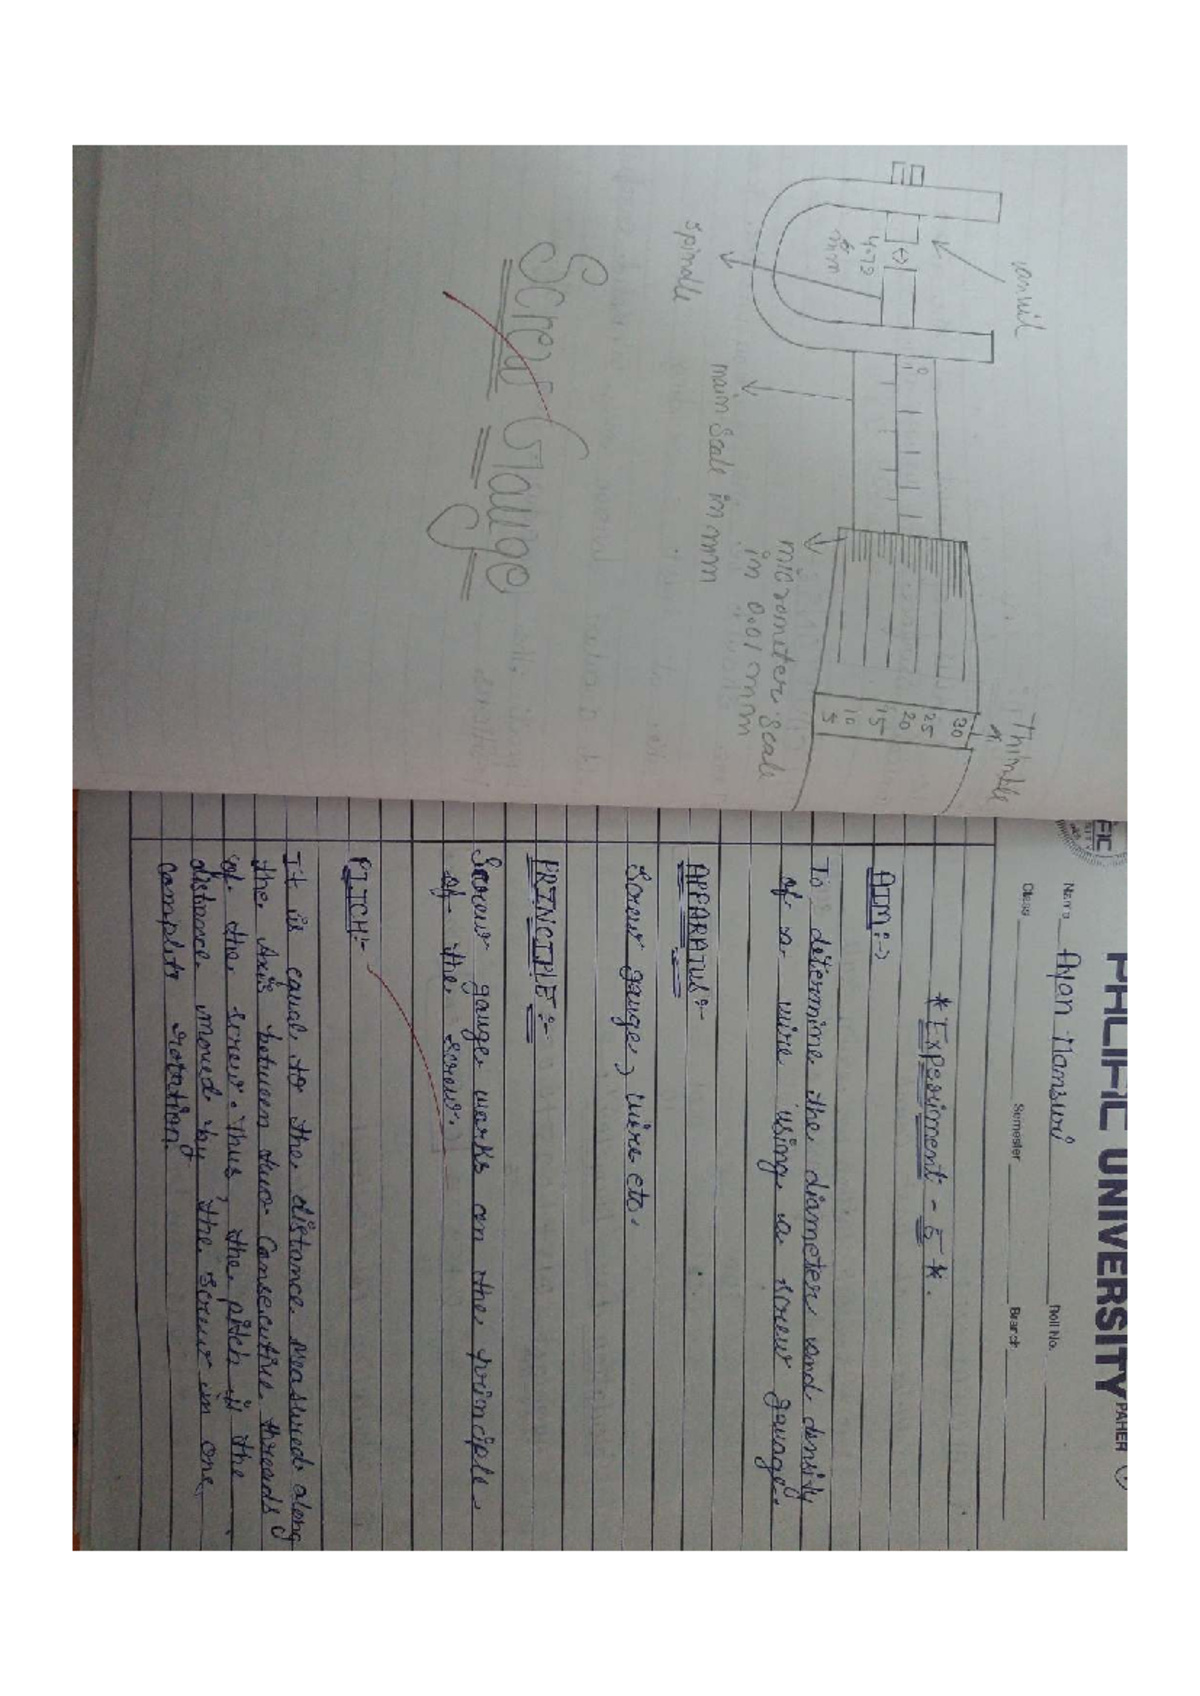 anvil
4.72
mm
spindle
0
main scale in mm
micrometer scale
in 0.01 mm
Thimble
30
25
20
15
10
5
Screw Gauge
PACIFIC UNIVERSITY
PAHER
Name Ayan Mansuri Roll No.
Class Semester Branch
* Experiment - 5 *.
AIM:->
To determine the diameter and density
of a wire using a screw gauge.
APPARATUS:-
Screw gauge, wire etc.
PRINCIPLE:-
Screw gauge works on the principle
of the screw.
PITCH:-
It is equal to the distance measured along
the Axis between two Consecutive threads
of the screw. Thus, the pitch is the
distance moved by the screw in one
complete rotation.